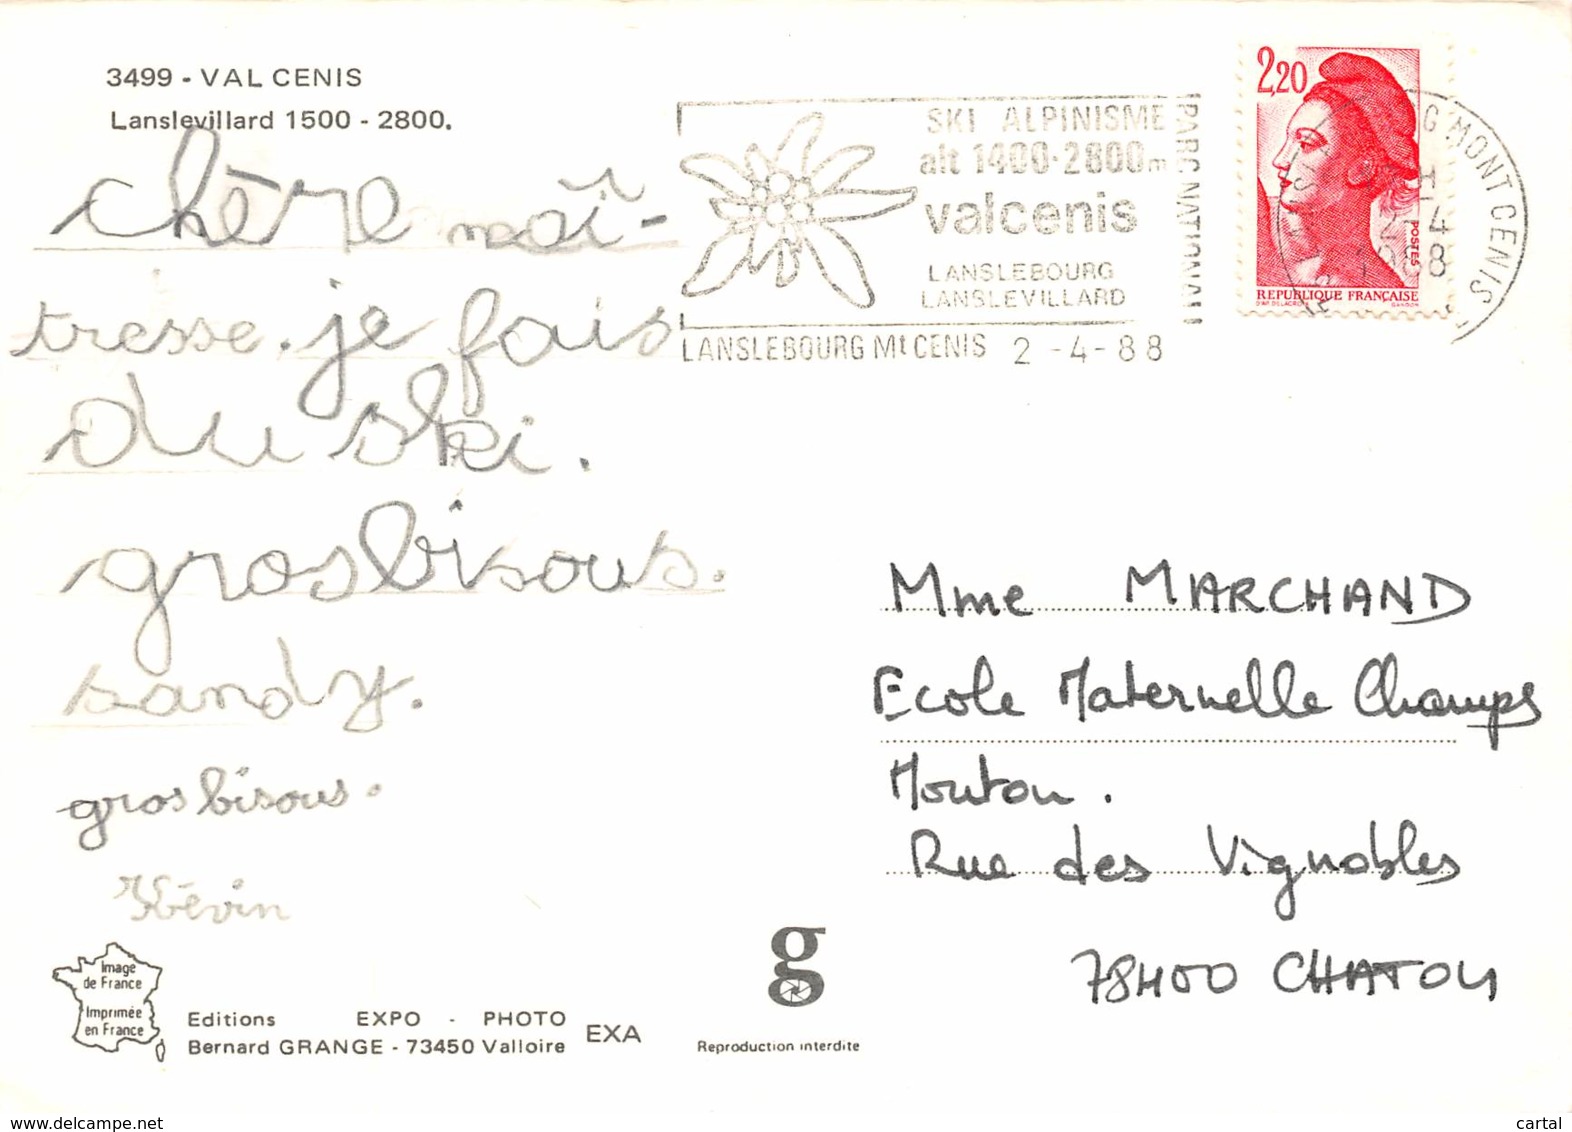 3499 - VAL CENIS
Lanslevillard 1500 - 2800.
chère maî-
tresse. je fais
du ski.
grosbisous.
sandy.
gros bisous.
Kévin
SKI ALPINISME
alt 1400-2800m
valcenis
LANSLEBOURG
LANSLEVILLARD
PARC NATIONAL
LANSLEBOURG Mt CENIS 2 -4-88
2,20
POSTES
REPUBLIQUE FRANÇAISE
G MONT CENIS
H
2 4
1988
Mme MARCHAND
Ecole Maternelle Champs
Mouton.
Rue des Vignobles
78400 CHATOU
Image
de France
Imprimée
en France
Editions EXPO - PHOTO
Bernard GRANGE - 73450 Valloire
EXA
g
Reproduction interdite
www.delcampe.net
cartal